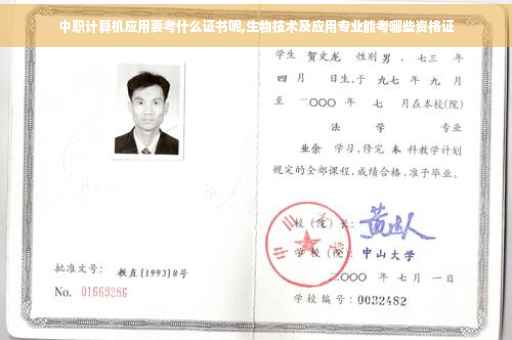 中职计算机应用要考什么证书呢,生物技术及应用专业能考哪些资格证
学生 贺文龙 性别 男 、七三 年
四 月 日生,于 九七 年 九 月
至 二〇〇〇 年 七 月在本校(院)
法 学 专业
业余 学习,修完 本 科教学计划
规定的全部课程,成绩合格,准予毕业。
校(院)长:
学校(院): 中山大学
二〇〇〇 年 七 月 一 日
学校编号: 0032482
批准文号: 教直[1993]8号
No. 01669286